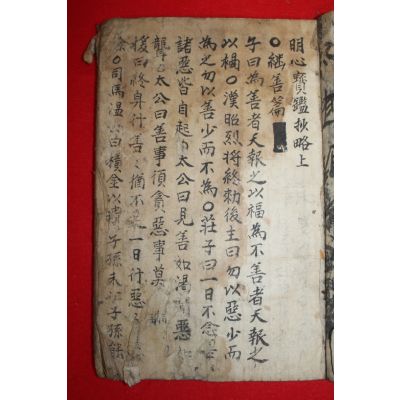 明心寶鑑抄略上
○繼善篇
子曰為善者天報之以福為不善者天報之
以禍○漢昭烈將終勅後主曰勿以惡少而
為之勿以善少而不為○莊子曰一日不念善
諸惡皆自起○太公曰見善如渴聞惡如
聾○太公曰善事須貪惡事莫
援曰終身行善〻猶不一日行惡〻
餘○司馬溫公曰積金以遺子孫未必子孫能